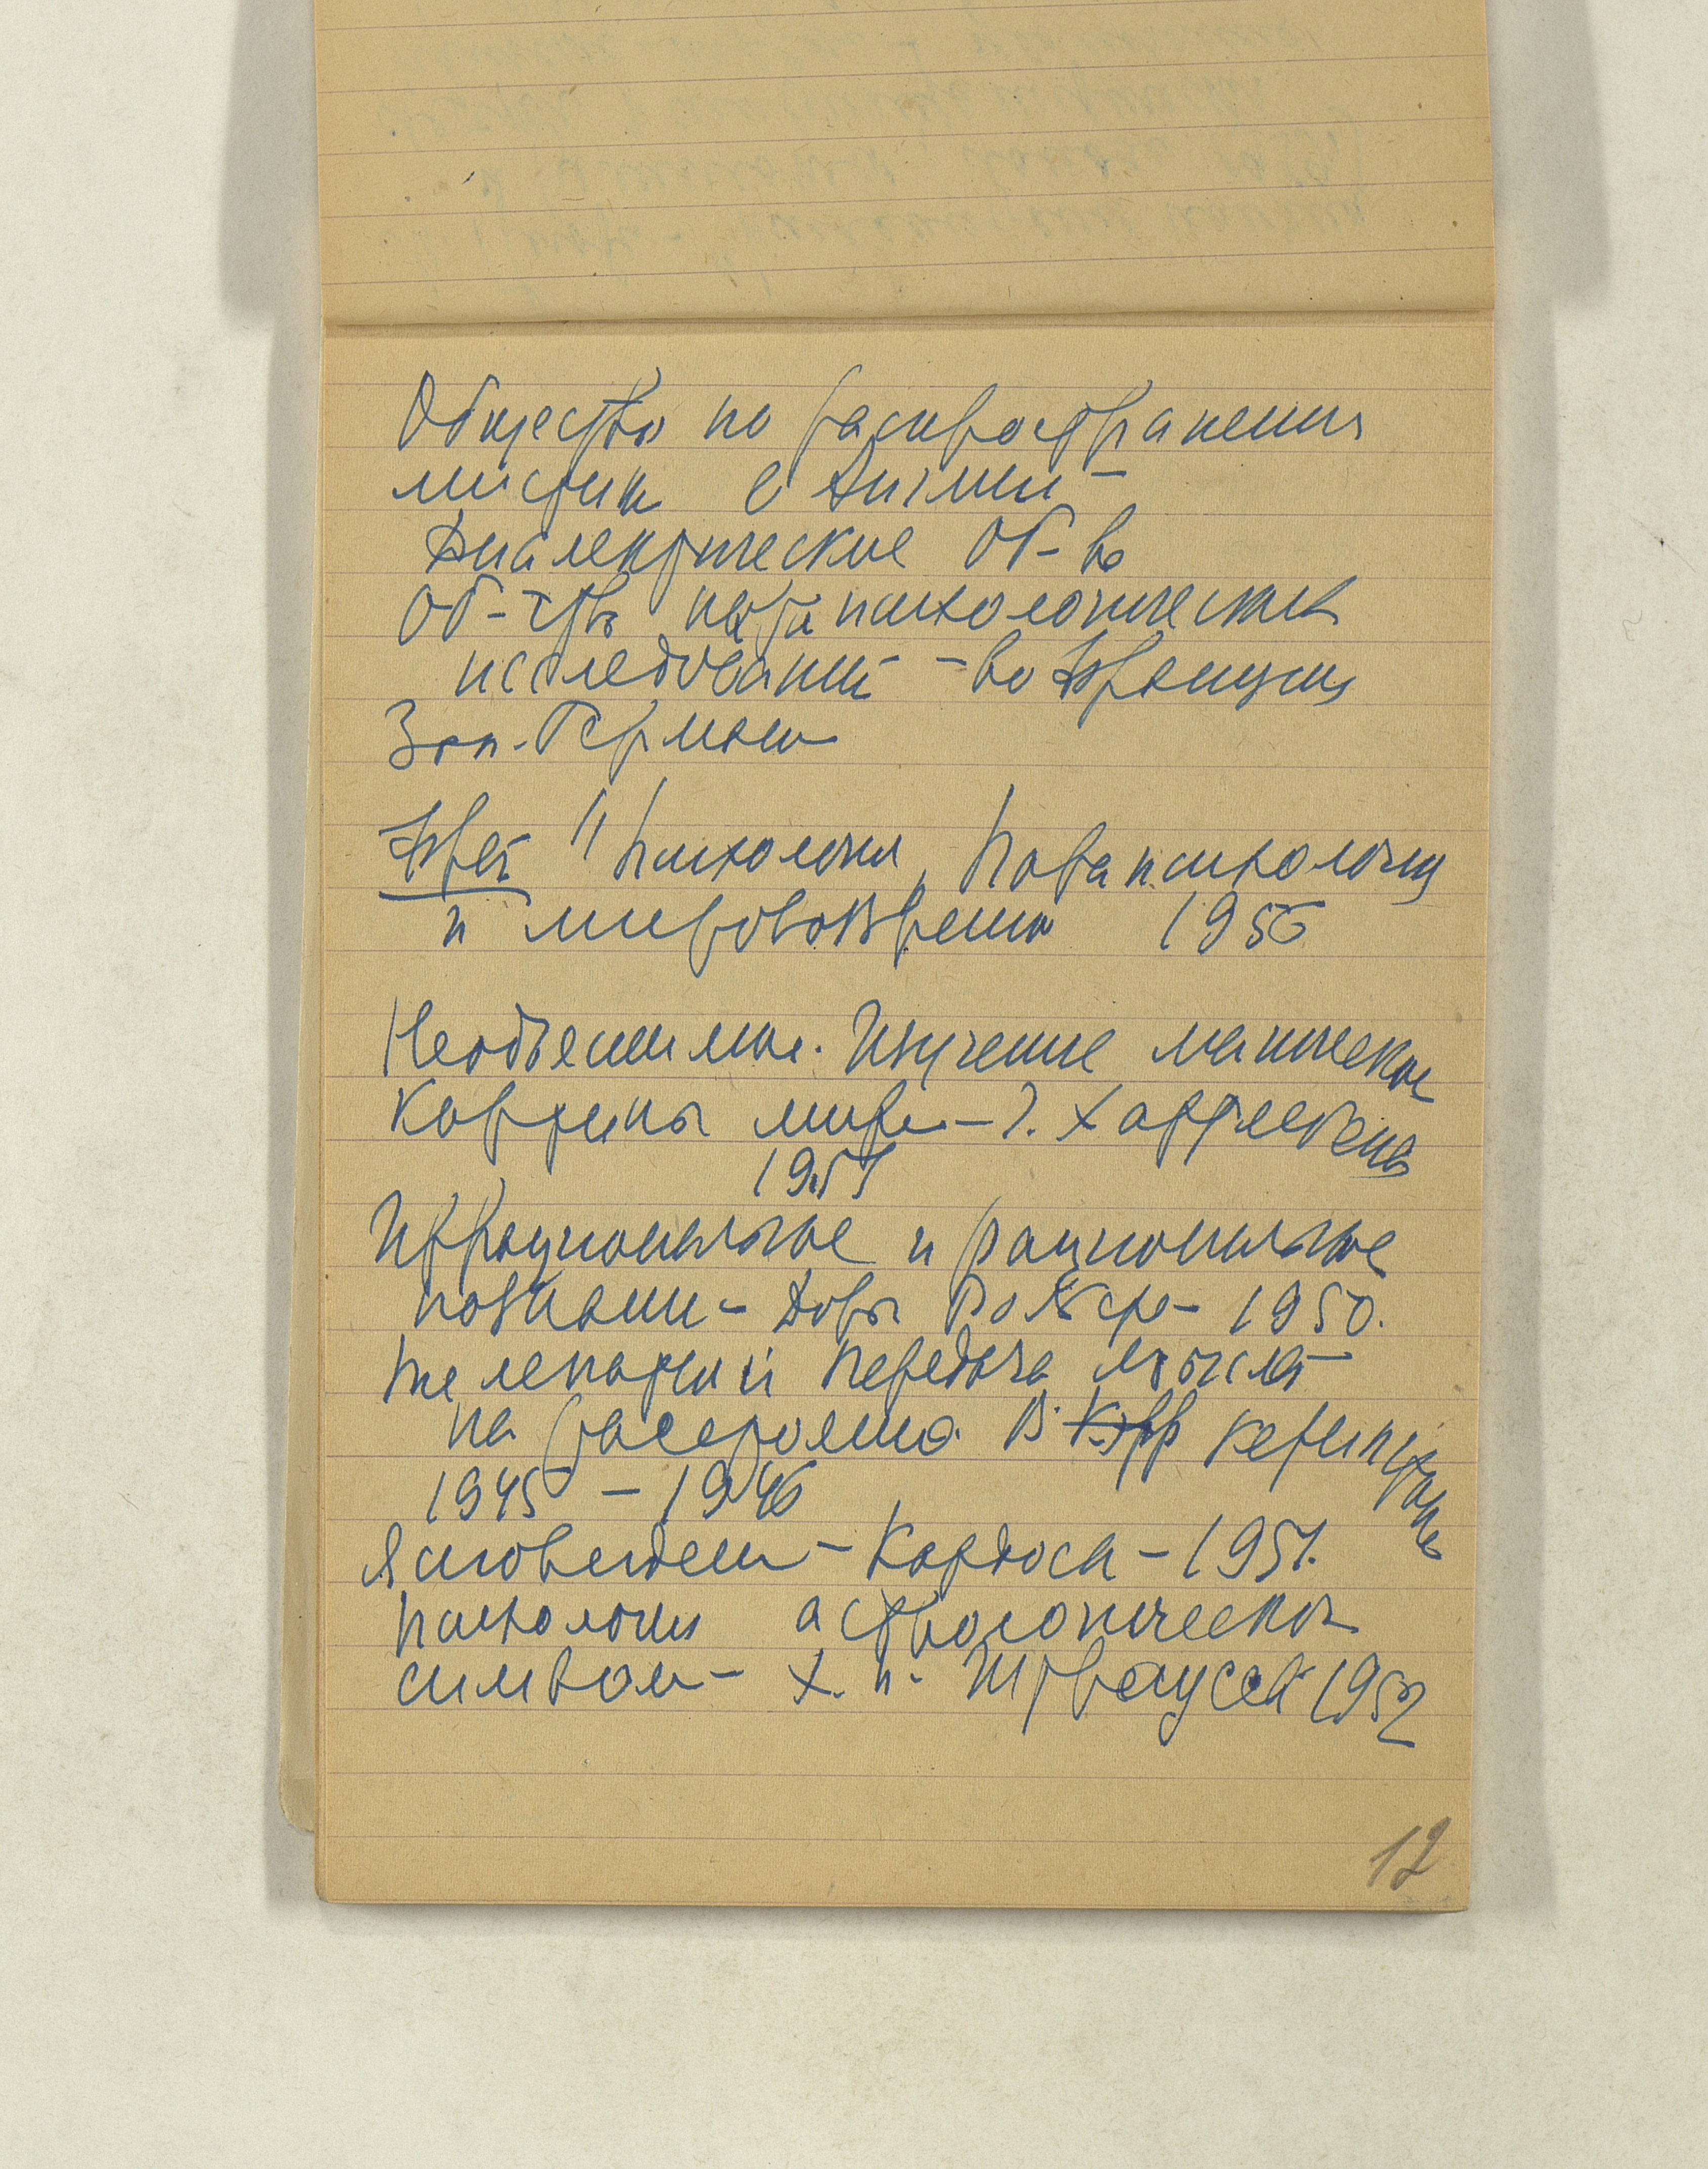 Общество по распространению
мистики в Англии –
Диалектическое Об-во
Об-ство парапсихологических
исследований – во Франции
Зап. Герман
"Психология, парапсихология
и мировоззрение 1956
Необъяснимое. Изучение магической
картины мира – Г. Хартлебена
1951
Иррациональное и рациональное
познание – Доры 1950.
Телепатия и передача мыслей
на расстояние. В. Керинштайн
1945 – 1946
Ясновидение – Кардоса – 1951.
Психология астрологической
символи – Х. П. Штраусса 1952
12